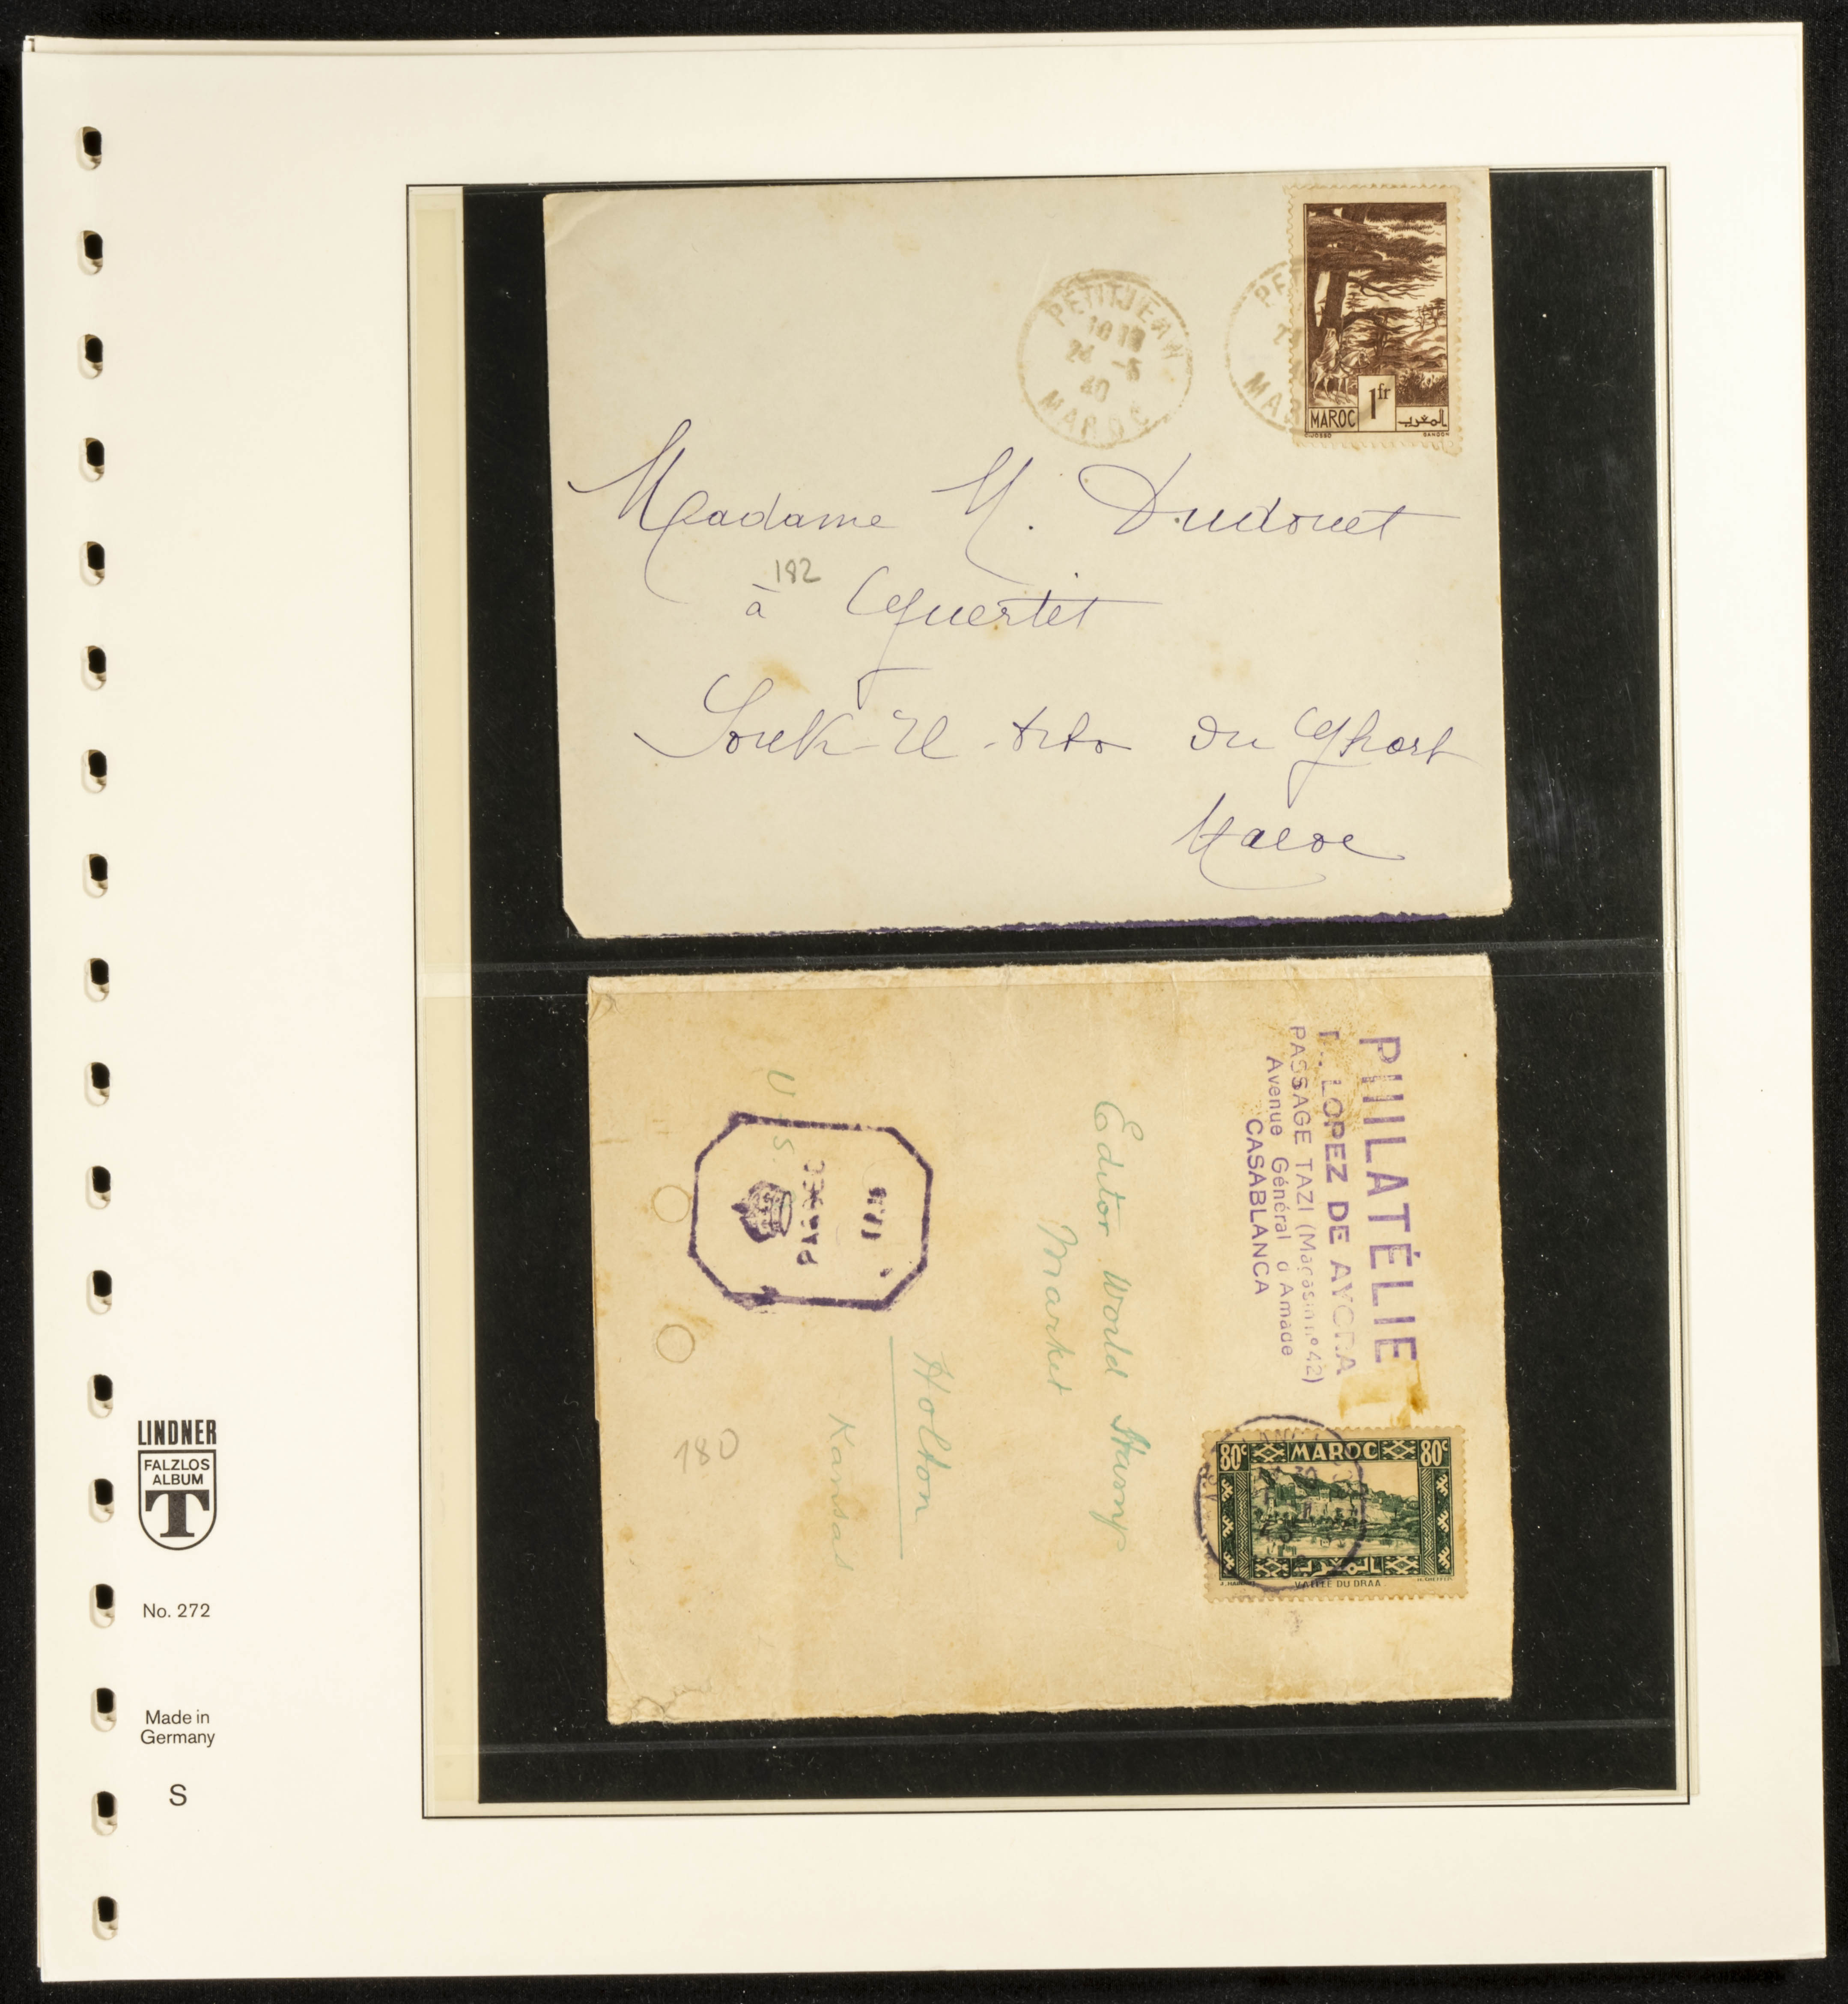 PETITJEAN
10 15
24 -5
40
MAROC
MAROC
1fr
المغرب
Madame M. Dudouet
192
à Guertet
Souk-El-Arba du Gharb
Maroc
PHILATÉLIE
LOPEZ DE AYORA
PASSAGE TAZI (Magasin nº 42)
Avenue Général d'Amade
CASABLANCA
80c MAROC 80c
المغرب
VALLÉE DU DRAA
Editor World Stamp
Market
Holton
Kansas
U.S.
PASSED
180
LINDNER
FALZLOS
ALBUM
T
No. 272
Made in
Germany
S